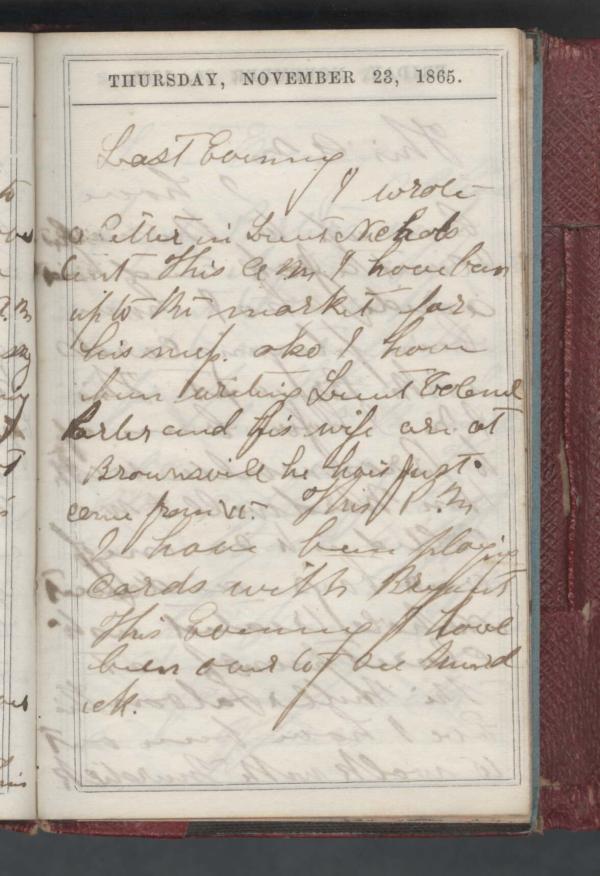 THURSDAY, NOVEMBER 23, 1865.
Last Evening
I wrote
a letter in Lieut Nichols
tent This A M I have ben
up to the market for
his mess. also I have
ben writing Lieut Colonel
Porter and his wife are at
Brownsville he hais just
come from Vt. This P. M
I have been playig
cards with Bryant
This Evening I have
been over to see Murd
ick.